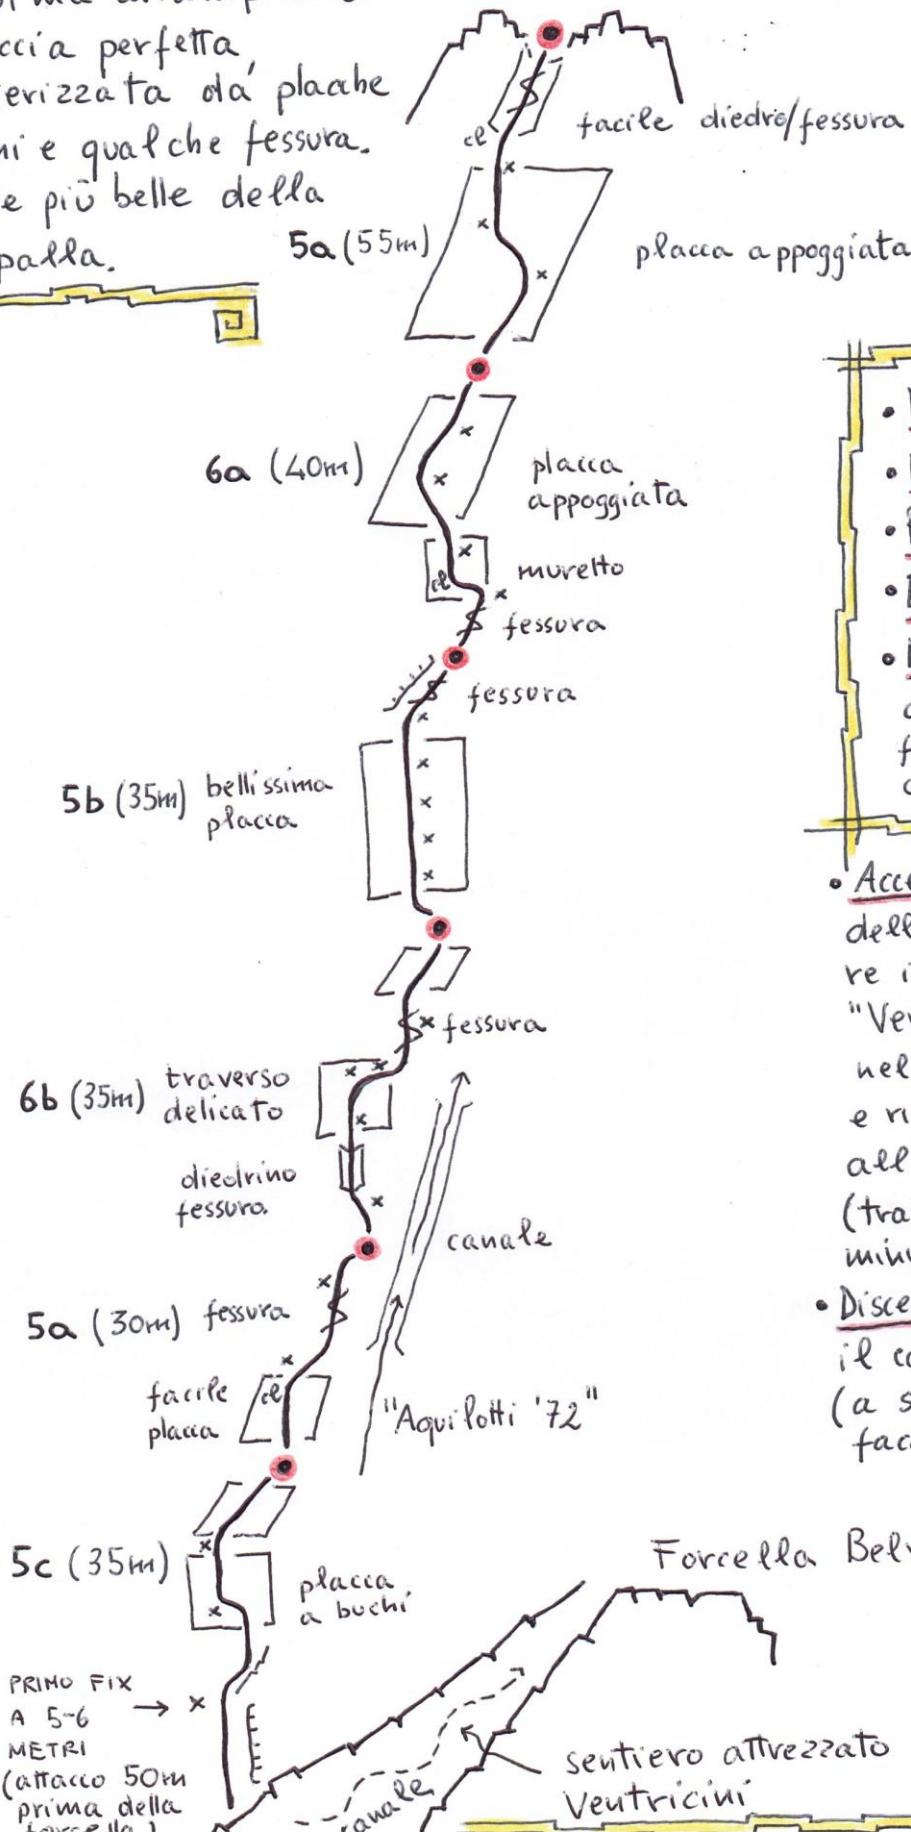 ccia perfetta,
erizzata dá placche
ni e qualche fessura.
e più belle della
palla.
facile diedro/fessura
cl
5a (55m)
placca appoggiata
6a (40m)
placca
appoggiata
cl
muretto
fessura
fessura
5b (35m)
bellissima
placca
fessura
6b (35m)
traverso
delicato
diedrino
fessura.
canale
5a (30m)
fessura
facile
placca
cl
"Aquilotti '72"
5c (35m)
placca
a buchi
PRIMO FIX
A 5-6
METRI
(attacco 50m
prima della
forcella)
Forcella Belv
canale
sentiero attrezzato
Ventricini
• Acce
dell
re i
"Ve
nel
e ri
all
(tra
minu
• Disce
il c
(a s
fac